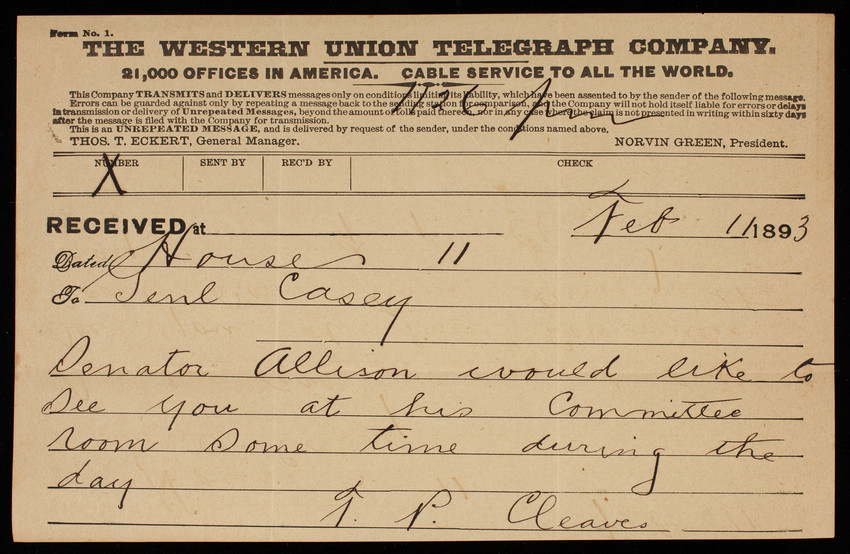 Form No. 1.
THE WESTERN UNION TELEGRAPH COMPANY.
21,000 OFFICES IN AMERICA. CABLE SERVICE TO ALL THE WORLD.
This Company TRANSMITS and DELIVERS messages only on conditions limiting its liability, which have been assented to by the sender of the following message.
Errors can be guarded against only by repeating a message back to the sending station for comparison, and the Company will not hold itself liable for errors or delays
in transmission or delivery of Unrepeated Messages, beyond the amount of tolls paid thereon, nor in any case where the claim is not presented in writing within sixty days
after the message is filed with the Company for transmission.
This is an UNREPEATED MESSAGE, and is delivered by request of the sender, under the conditions named above.
THOS. T. ECKERT, General Manager. NORVIN GREEN, President.
NUMBER SENT BY REC'D BY CHECK
X
RECEIVED at Feb 11 1893
Dated House 11
To Genl Casey
Senator Allison would like to
see you at his Committee
room some time during the
day
T. P. Cleaves